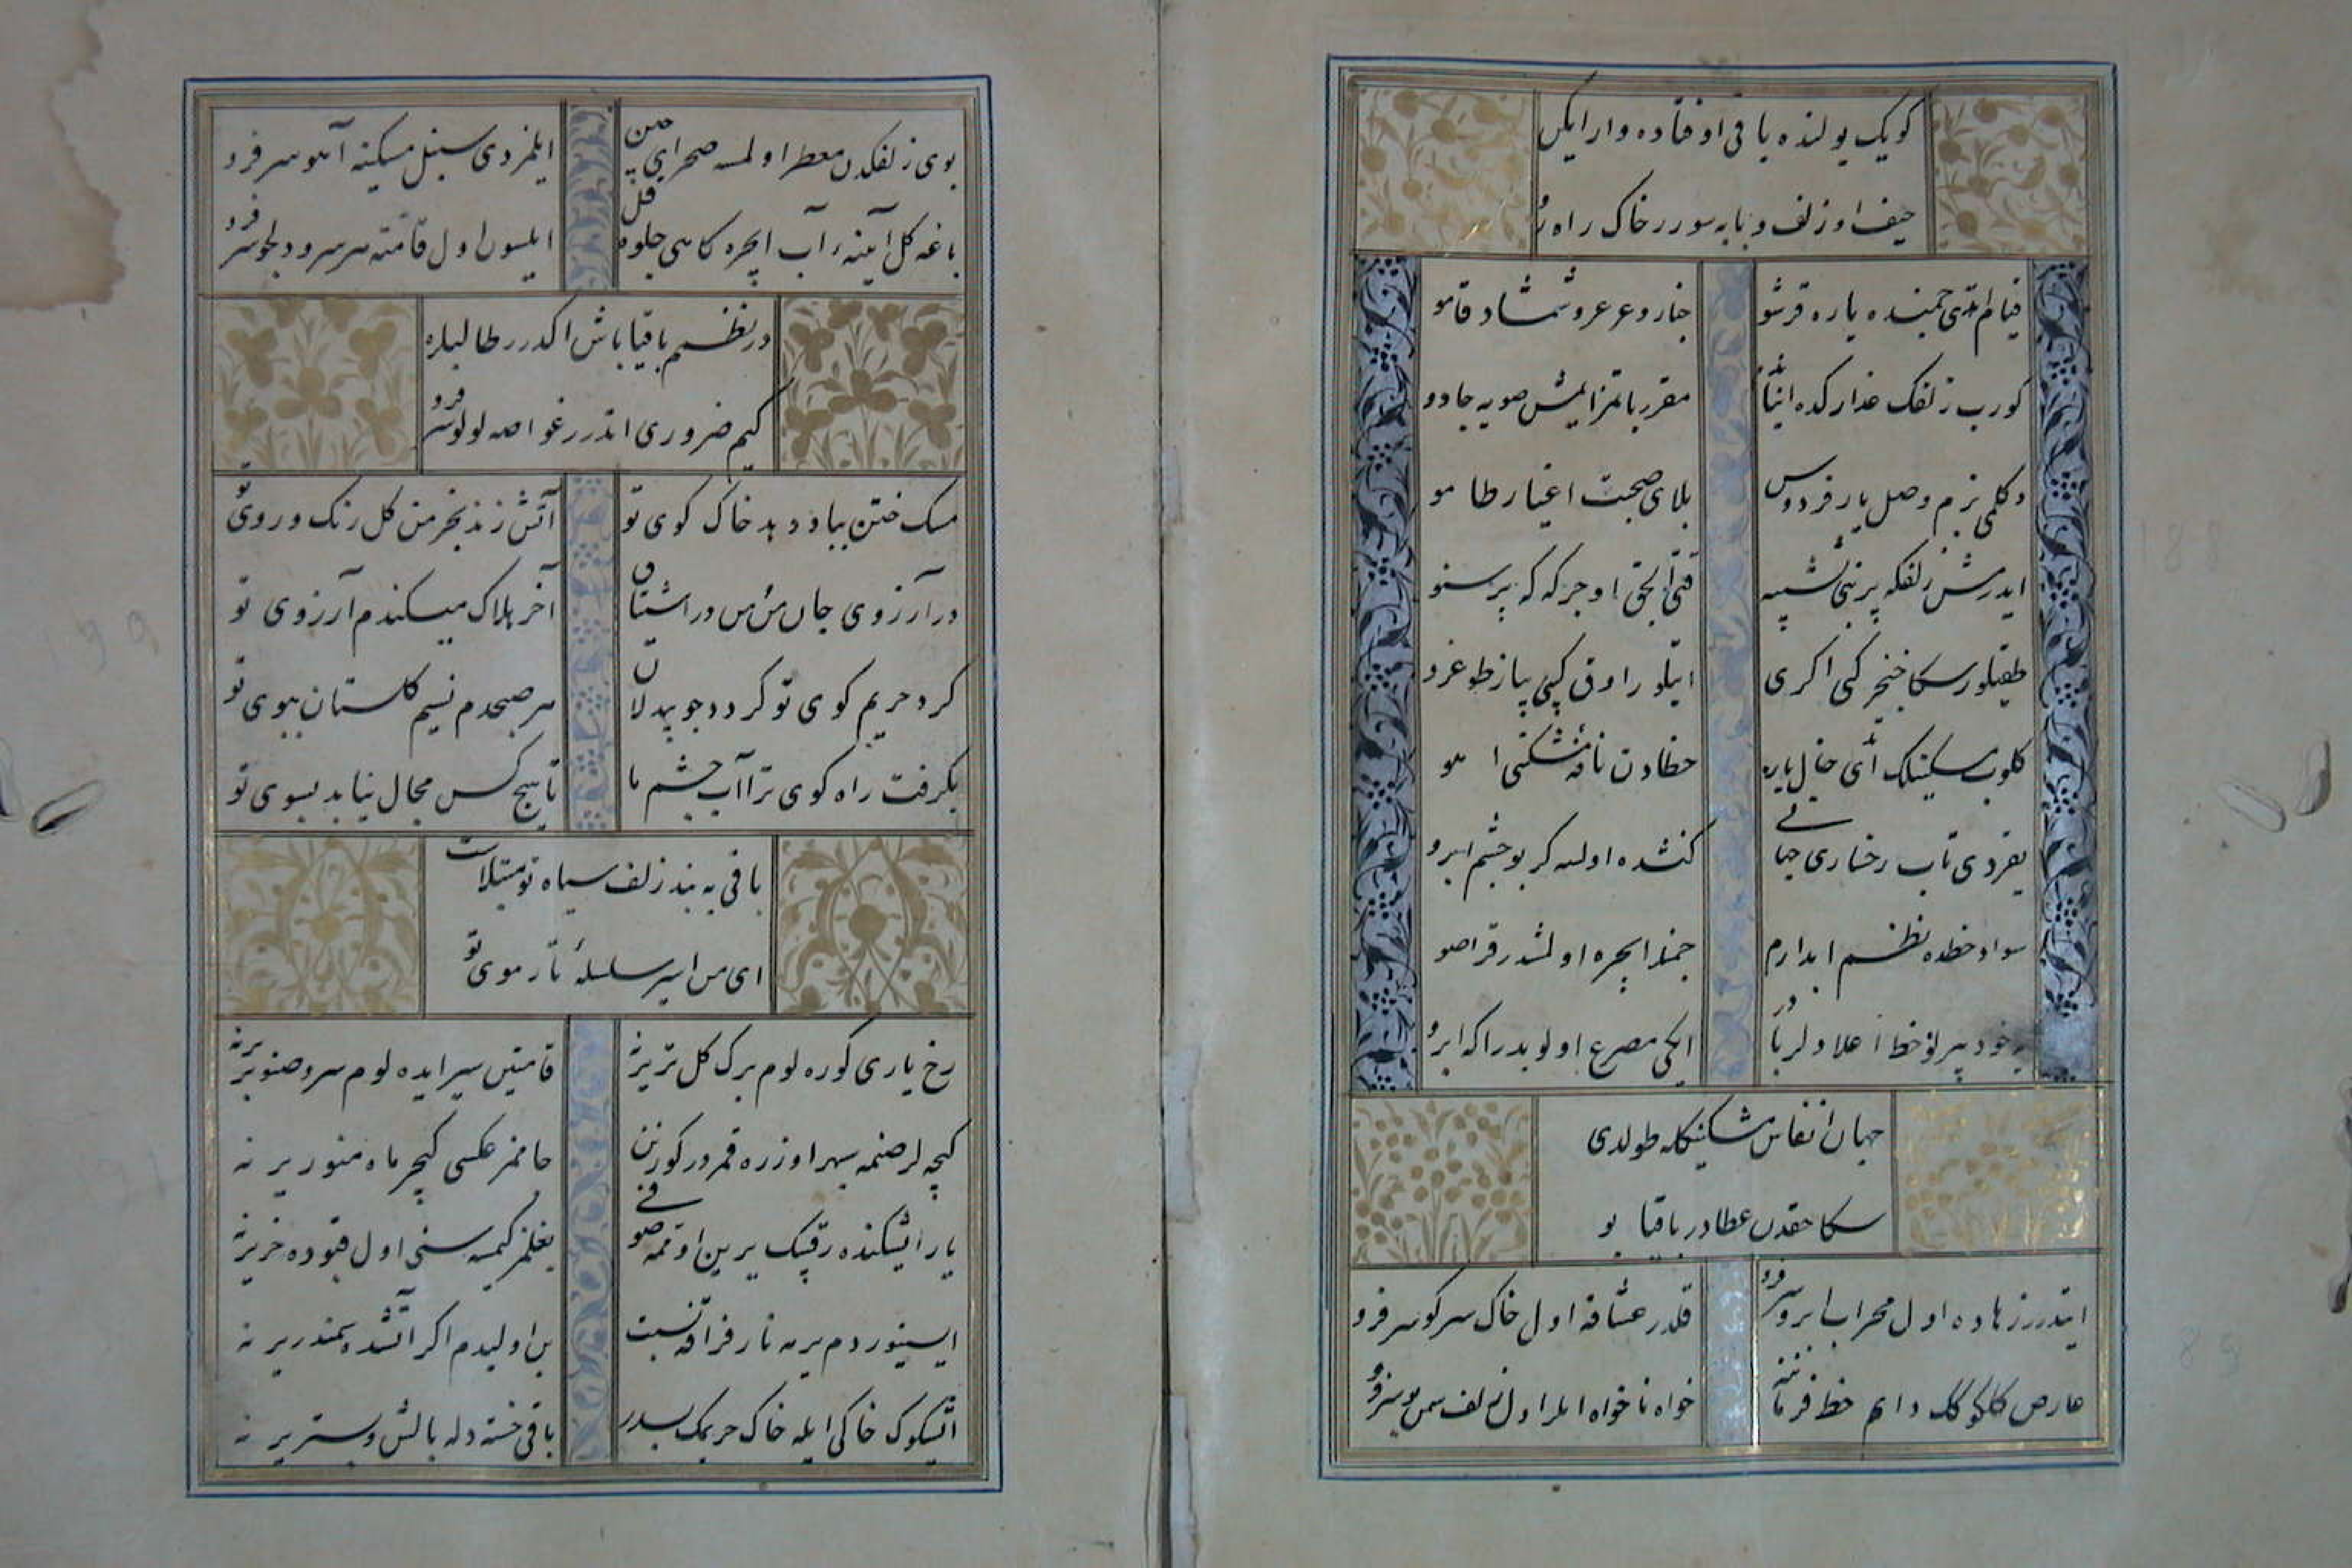 کویک یولنده باقی اوفتاده وار ایکن
حیف او زلف و تابه سورر خاک راه رو
قیام اتدی چمنده یاره قرشو
چنار و عرعر و شمشاد قامو
کورب زلفک عذارکده اینانما
مقرر باتمز ایمش صویه جادو
دکلمی بزم وصل یار فردوس
بلای صحبت اغیار طامو
ایدرمش زلفکه پر نی تشبیه
قنی الحق اوجز که که پرستو
طقیلور سکا خنجر کبی اکری
اتیلور اوق کبی پیاز طوغرو
کلوب مسکینلک ای خال یاره
خطادن نافه مشکی ا هو
یقردی تاب رخساری جهانی
کنشده اولسه کر بو چشم ابرو
سواد خطده نظم ابدارم
چمنلر ایچره اولمشدر قرا صو
ایکی مصرع اولوبدر اکه ابرو
جهان انفاس مشکینکله طولدی
سکا حقدن عطادر باقیا بو
ایتدرر زهاده اول محراب ابرو سر فرو
قلدرر عشاقه اول خاک سر کو سر فرو
عارض کلکونک دایم خط فرماننه
خواه ناخواه ایلر اول زلف سمن بو سر فرو
بوی زلفکدن معطر اولمسه صحرای چین
ایلمزدی سنبل مسکینه آهو سر فرو
باغه کل آیینه آب ایچره کاهی جلوه قل
ایلسون اول قامته هر سرو دلجو سر فرو
در نظم باقیا باش اکدرر طالبلره
کیم ضروری اتدرر غواصه لولو سر فرو
مسک ختن بباد دهد خاک کوی تو
آتش زند بخرمن کل رنک و روی تو
در آرزوی جان من و من در اشتیاق
آخر هلاک میکندم آرزوی تو
کرد حریم کوی تو کردد چو بیدلان
هر صبحدم نسیم کلستان ببوی تو
بکرفت راه کوی ترا آب چشم ما
تا هیچ کس مجال نیابد بسوی تو
باقی به بند زلف سیاه تو مبتلاست
ای من اسیر سلسلهٔ تار موی تو
رخ یاری کوره لوم برک کل تر یرنه
قامتین سیر ایده لوم سرو صنوبر یرنه
کیچه لر صنمه سپهر اوزره قمردر کورنن
جامکز عکسی کچر ماه منور یرنه
یار اشیکنده رقیبک یرین اوتمه صوفی
بغلمز کیمسه سنی اول قپوده خر یرنه
ایسینوردم یرمه نار فراقه نسبت
بن اولیدم اکر آتشده سمندر یرنه
اشیکوک خاکی ایله خاک حریمک بسدر
باقی خسته دله بالش و بستر یرنه